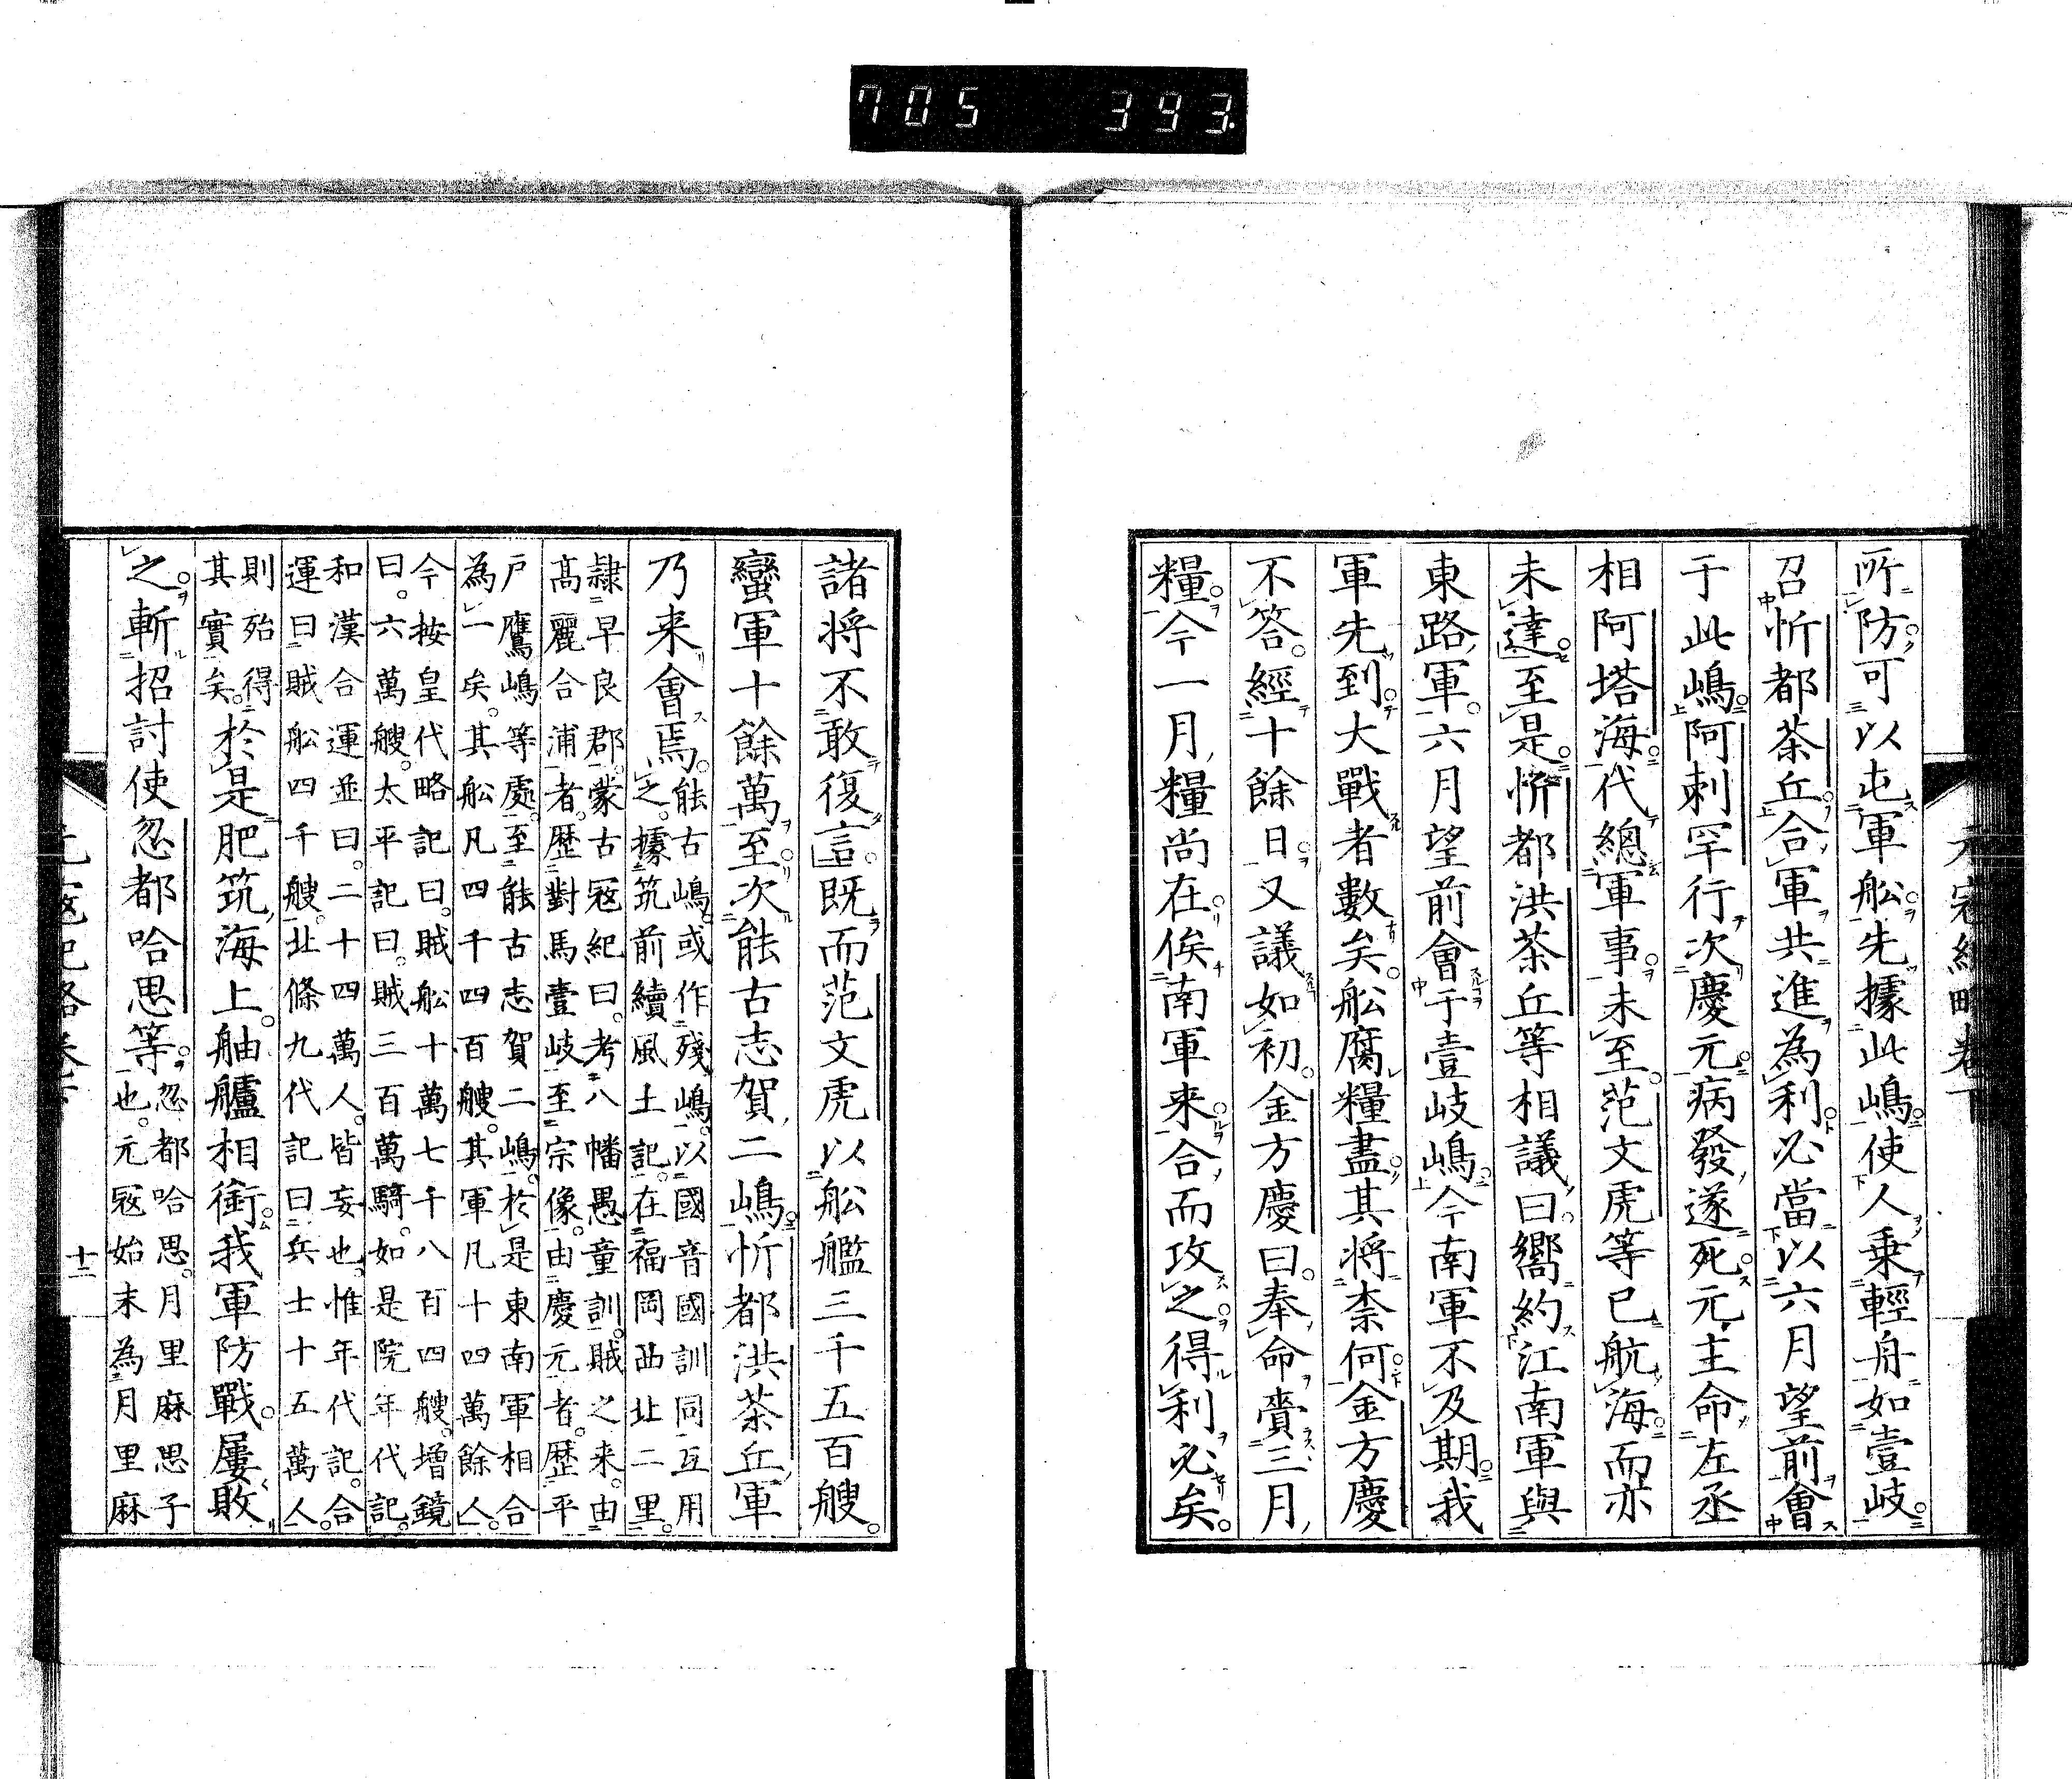 705 393
元寇紀略卷下
所防可以屯軍舩先據此嶋使人乗輕舟如壹岐
召忻都茶丘合軍共進為利必當以六月望前會
于此嶋阿刺罕行次慶元病發遂死元主命左丞
相阿塔海代總軍事未至范文虎等已航海而亦
未達至是忻都洪茶丘等相議曰嚮約江南軍與
東路軍六月望前會于壹岐嶋今南軍不及期我
軍先到大戰者數矣舩腐糧盡其将柰何金方慶
不答經十餘日又議如初金方慶曰奉命賷三月
糧今一月糧尚在俟南軍来合而攻之得利必矣
諸将不敢復言既而范文虎以舩艦三千五百艘
蠻軍十餘萬至次能古志賀二嶋忻都洪茶丘軍
乃来會焉
能古嶋或作殘嶋以國音國訓同互用
之據筑前續風土記在福岡西北二里
隷早良郡蒙古寇紀曰考八幡愚童訓賊之来由
髙麗合浦者歴對馬壹岐至宗像由慶元者歴平
戸鷹嶋等處至能古志賀二嶋於是東南軍相合
為一矣其舩凡四千四百艘其軍凡十四萬餘人
今按皇代略記曰賊舩十萬七千八百四艘増鏡
曰六萬艘太平記曰賊三百萬騎如是院年代記
和漢合運並曰二十四萬人皆妄也惟年代記合
運曰賊舩四千艘北條九代記曰兵士十五萬人
則殆得
其實矣
於是肥筑海上舳艫相銜我軍防戰屢敗
之斬招討使忽都哈思等
忽都哈思月里麻思子
也元寇始末為月里麻
元寇紀略卷下
十二